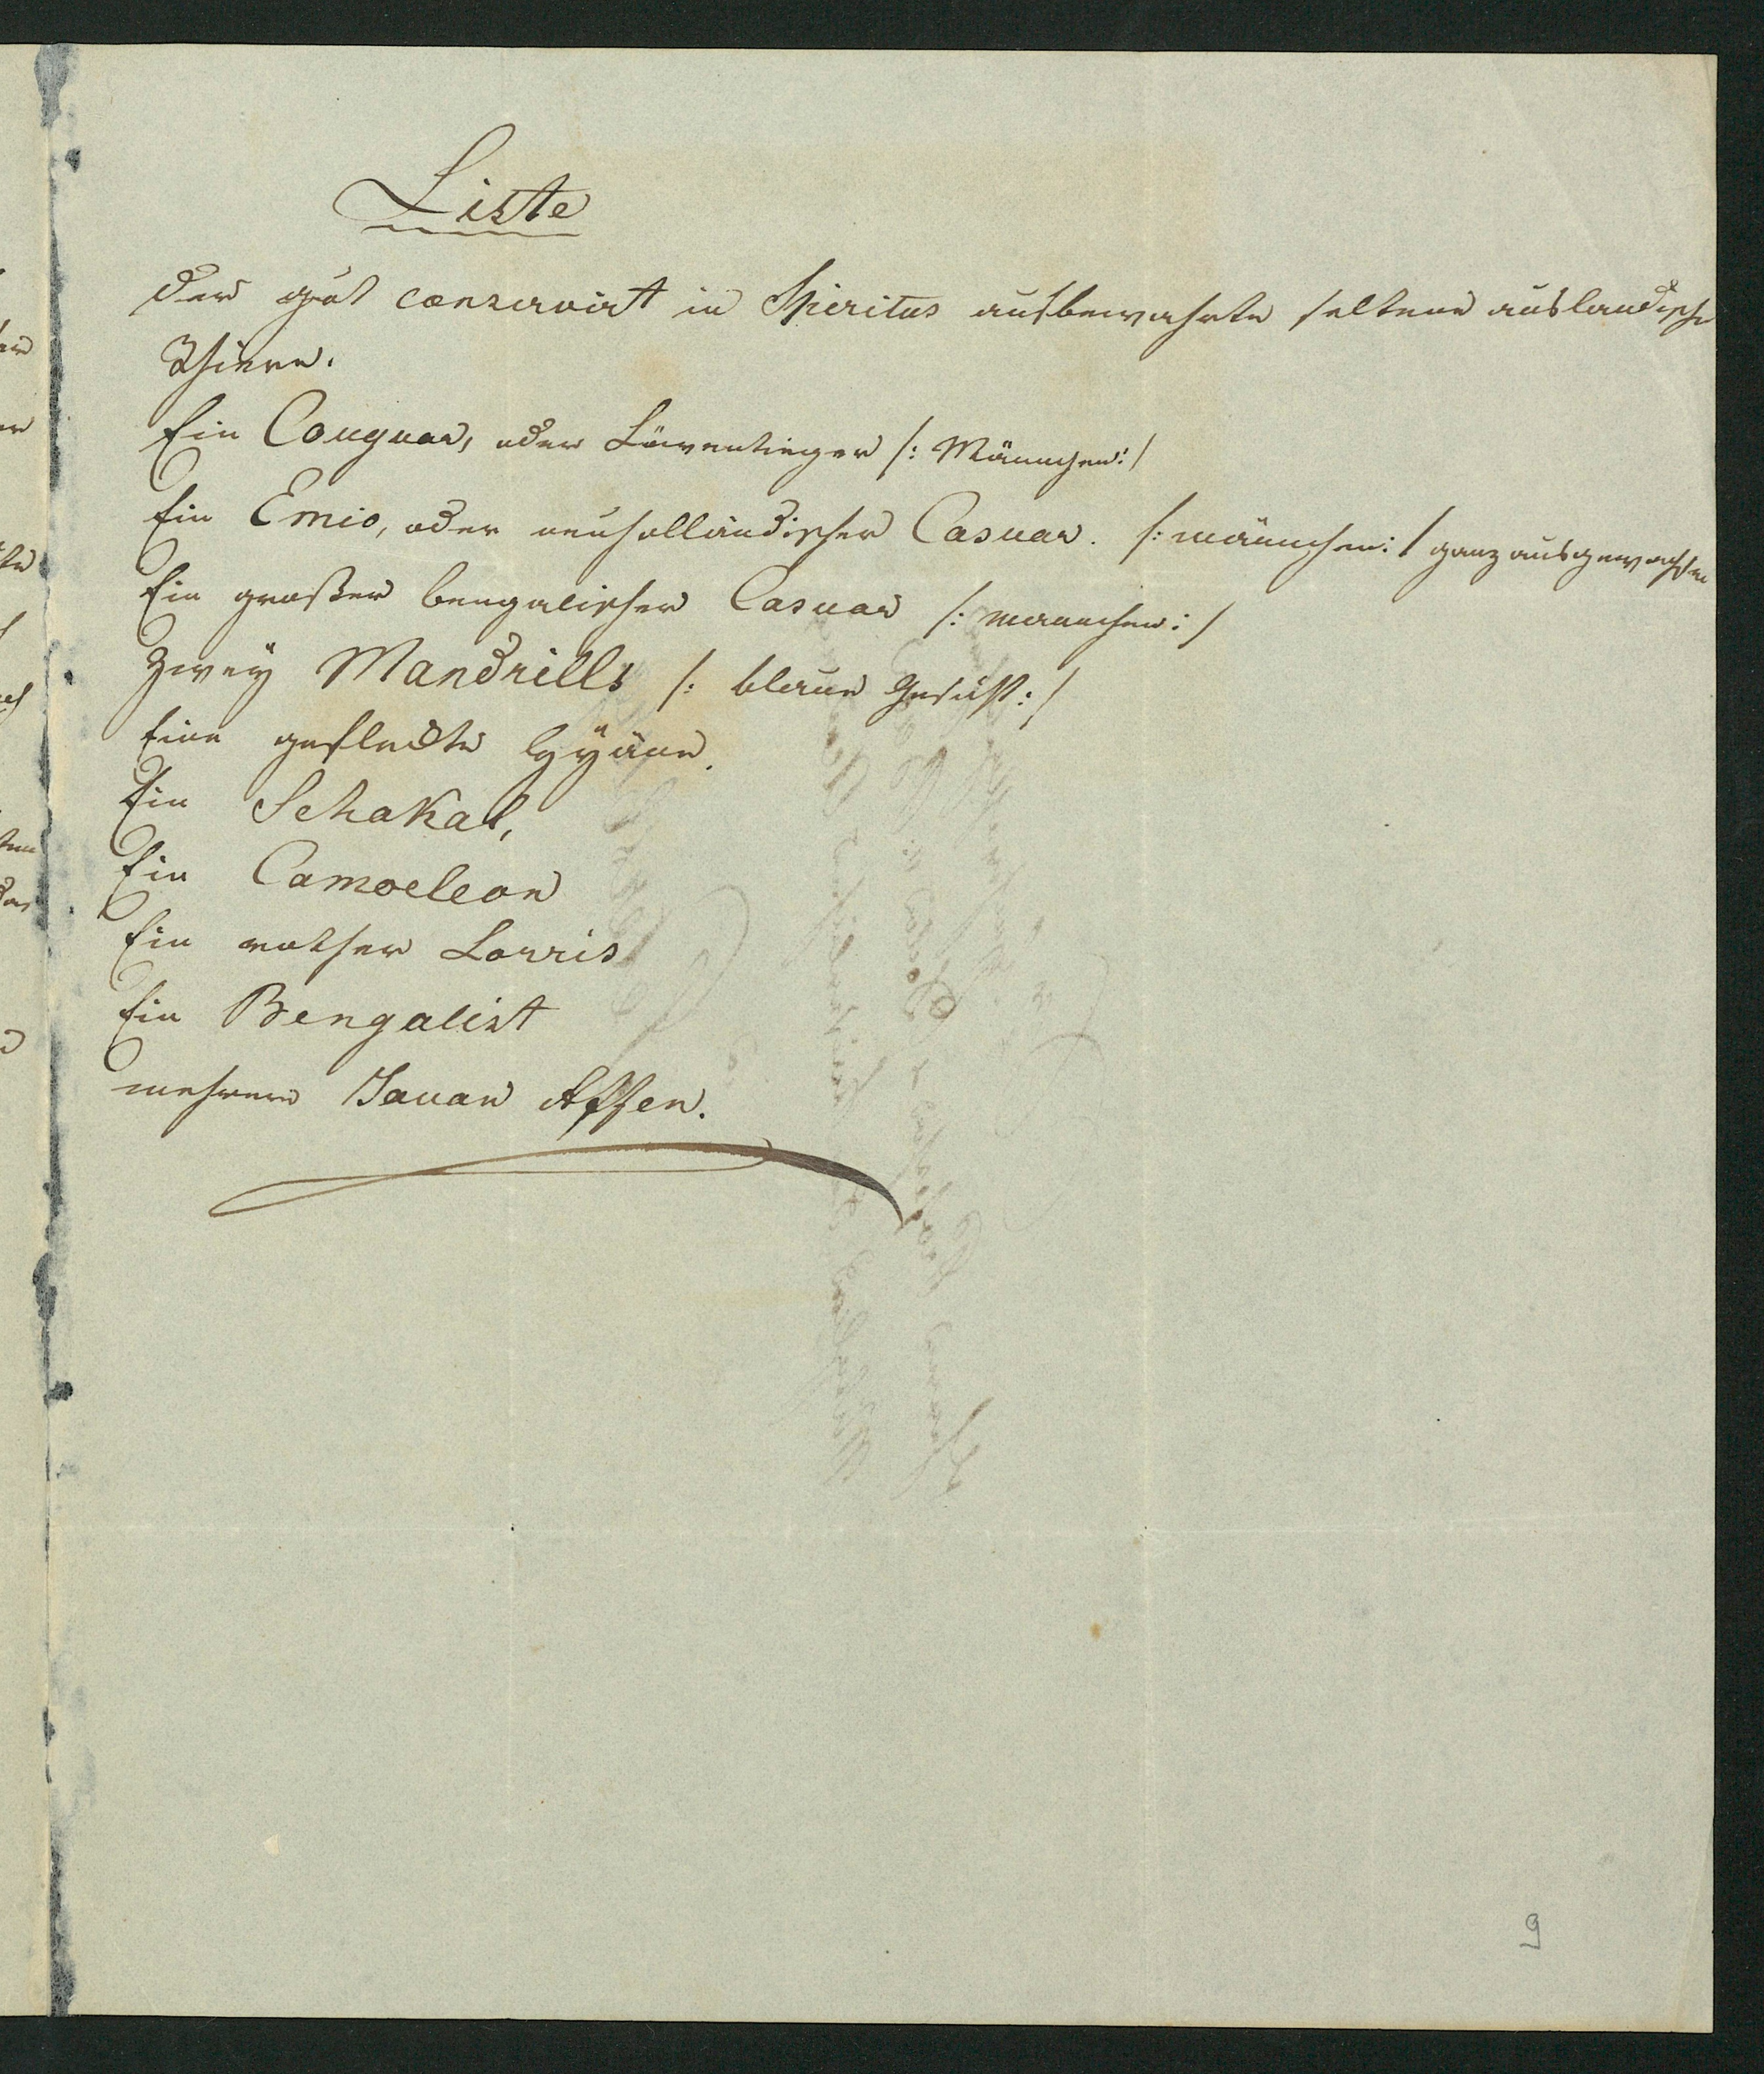 Liste
der gut conservirt in Spiritus aufbewahrte seltene auslandische
Thiere.
Ein Couguar, oder Löwentieger /: Männchen :/
Ein Emio, oder neuholländischer Casuar. /: männchen :/ ganz ausgewachsen
Ein großer bengalischer Casuar /: mannchen :/
Zwey Mandrills /: blaue Gesicht :/
Eine gefleckte Hyäne.
Ein Schakal,
Ein Camoeleon
Ein rother Lorris
Ein Bengalist
mehrere Javan Affen.
9